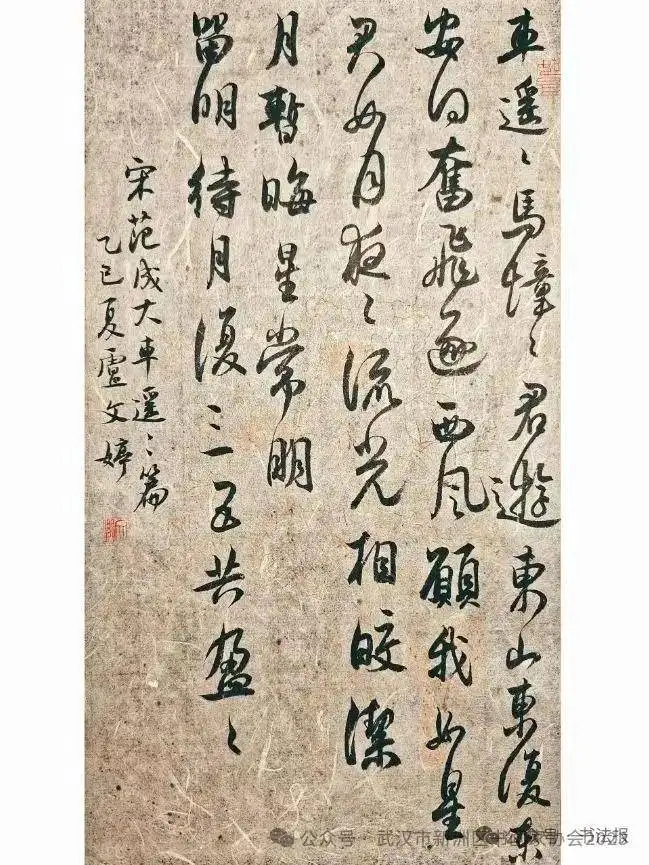 車遥〻馬憧〻君遊東山東復東
安得奮飛逐西風願我如星
君如月夜〻流光相皎潔
月暫晦星常明
留明待月復三五共盈〻
宋范成大車遥〻篇
乙巳夏盧文婷
公众号·武汉市新洲区书法家协会2025
公众号·书法报